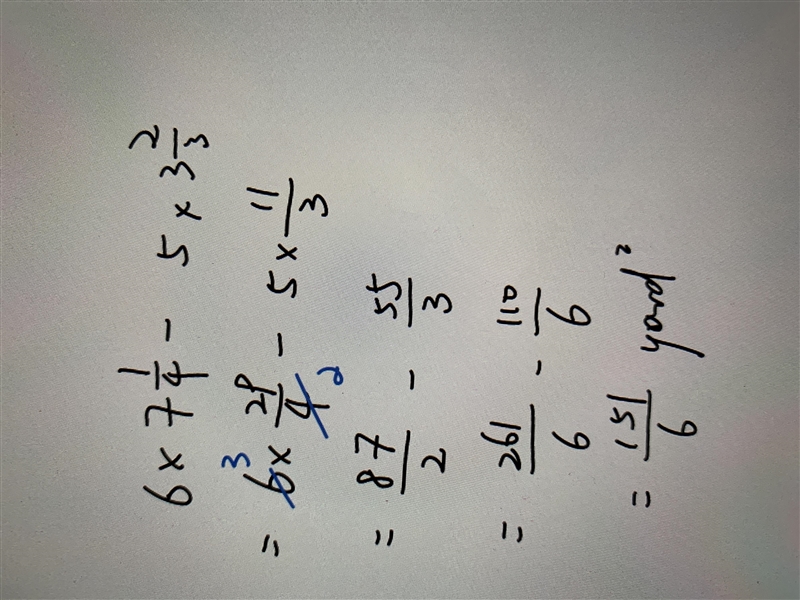 6 × 7 1/4 - 5 × 3 2/3
= 3 6 × 29/4 2 - 5 × 11/3
= 87/2 - 55/3
= 261/6 - 110/6
= 151/6 yard²